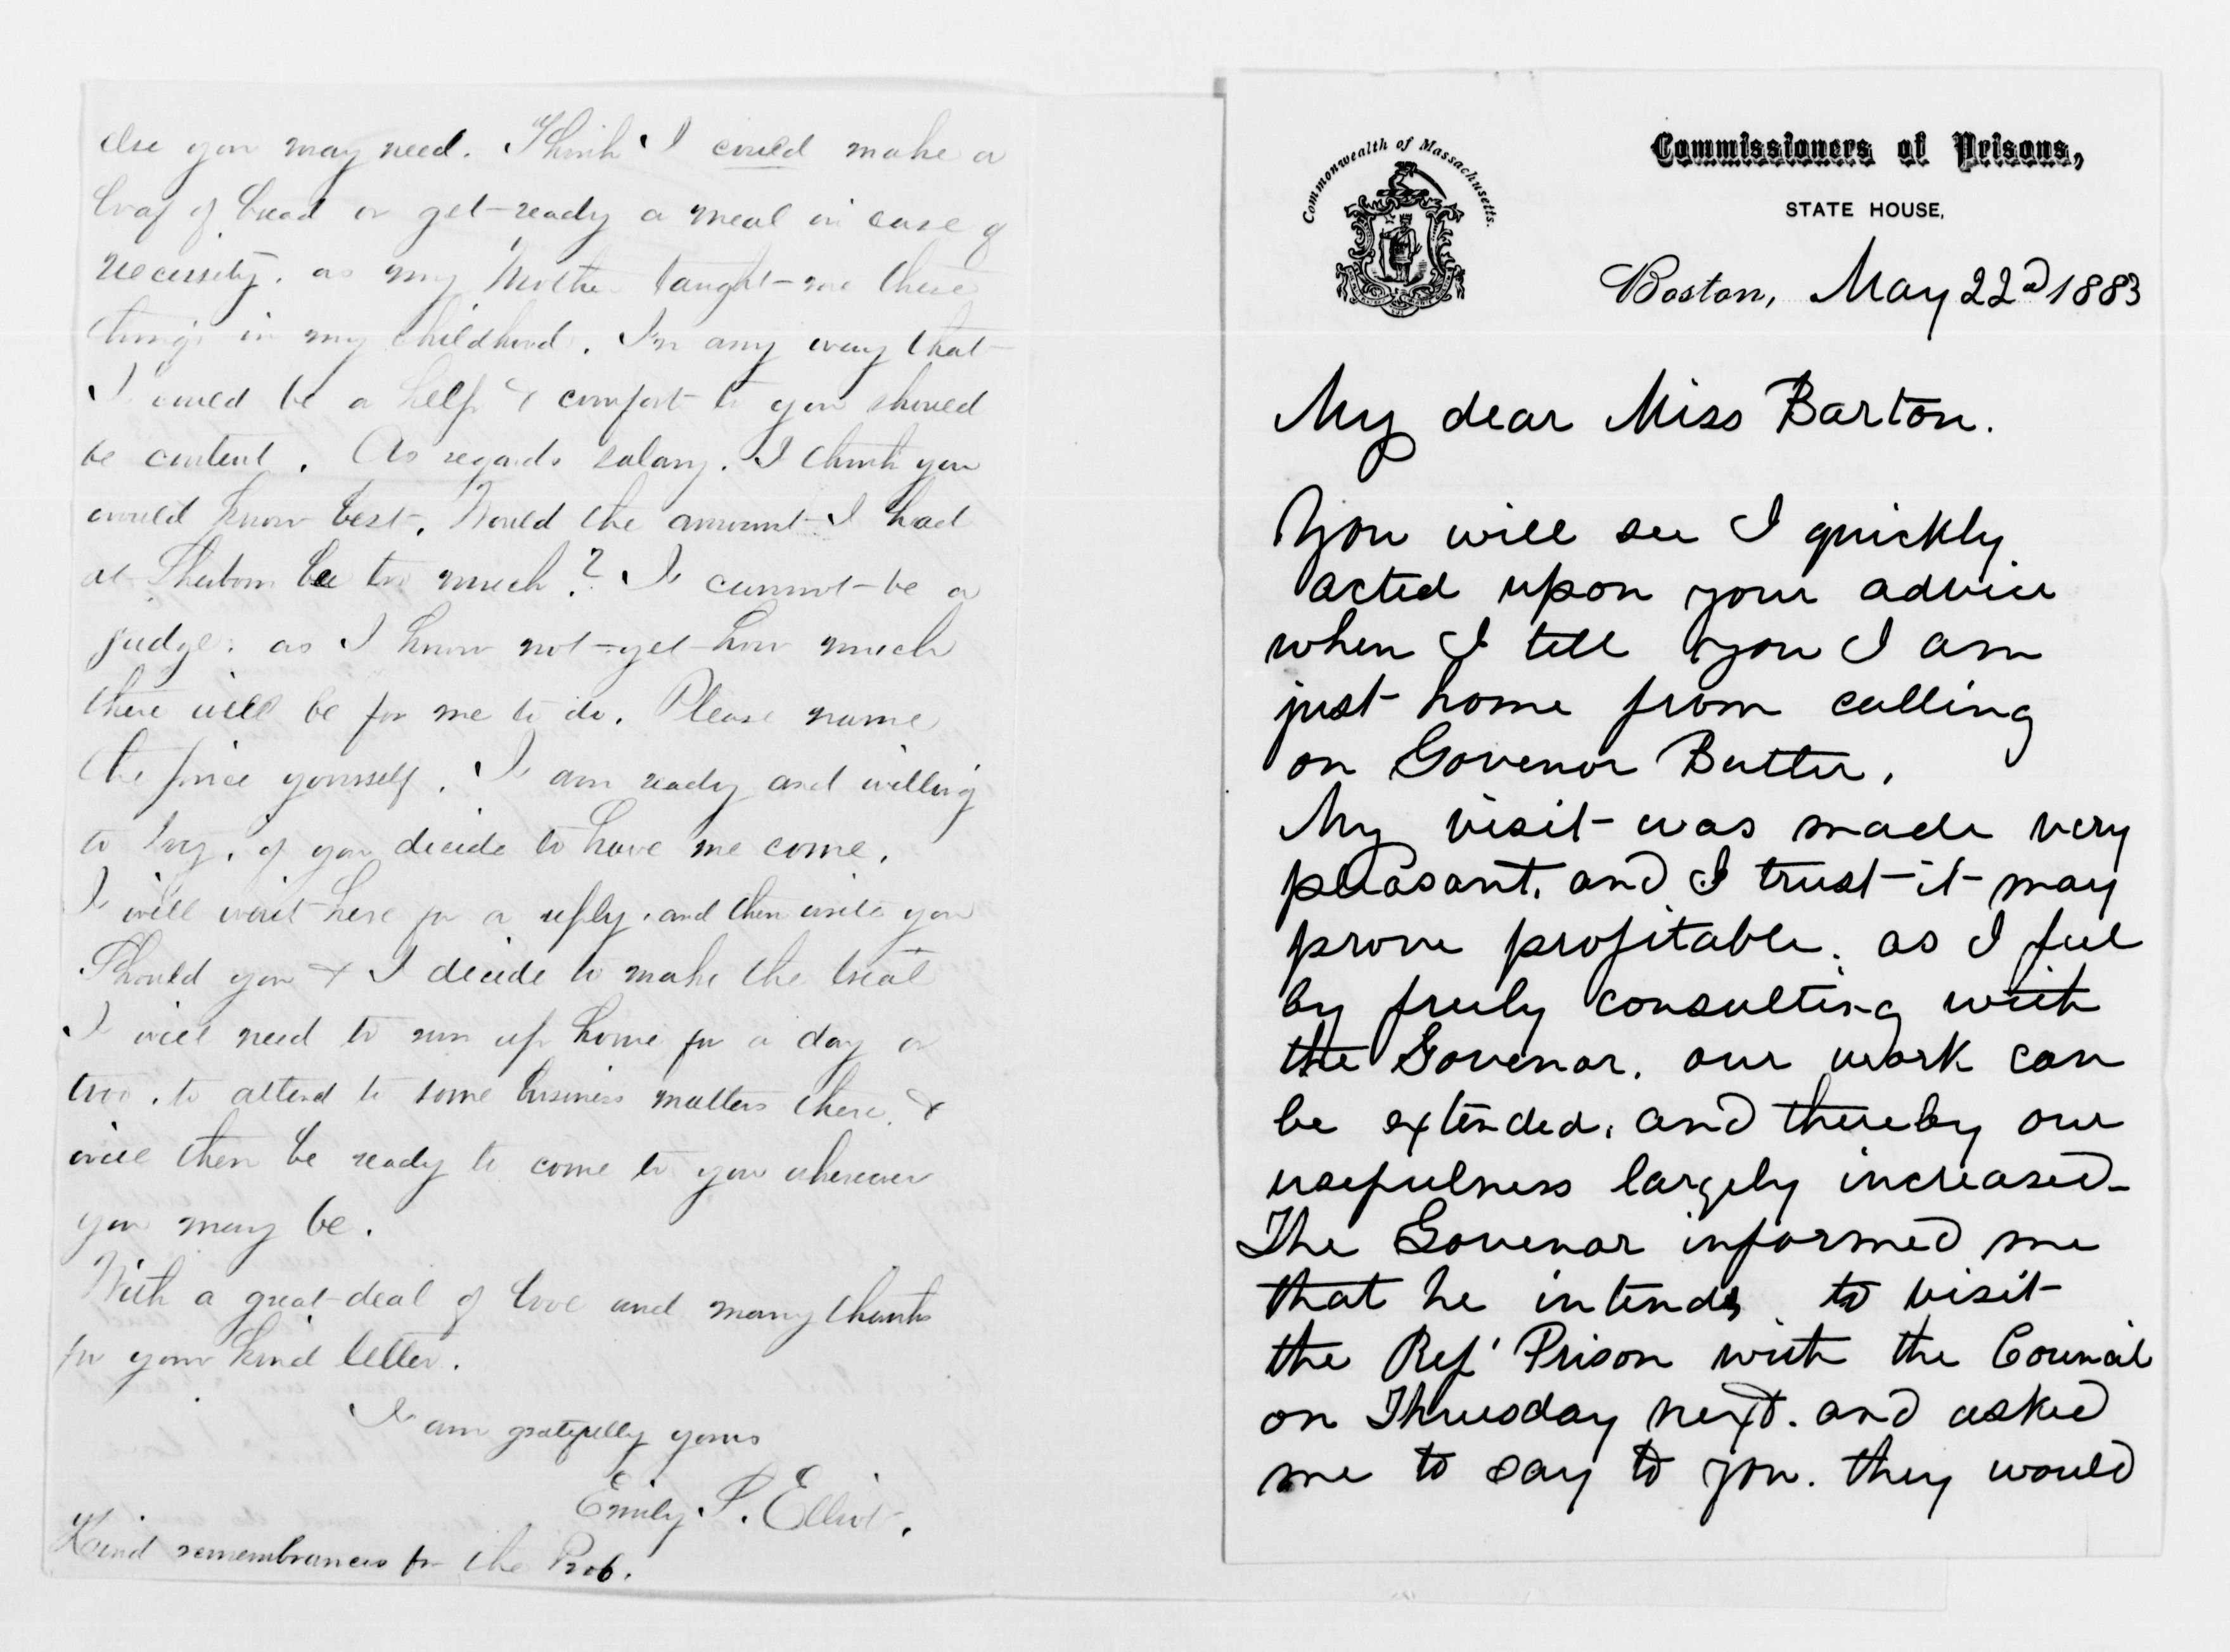 else you may need. Think I could make a
loaf of bread or get ready a meal in case of
necessity. as my Mother taught me these
things in my childhood. In any way that
I could be a help & comfort to you should
be content. As regards salary. I think you
would know best. Would the amount I had
at Sherborn be too much? I cannot be a
judge. as I know not yet how much
there will be for me to do. Please name
the price yourself. I am ready and willing
to try. if you decide to have me come.
I will wait here for a reply. and then write you
Should you & I decide to make the trial
I will need to run up home for a day or
two. to attend to some business matters there. &
will then be ready to come to you wherever
you may be.
With a great deal of love and many thanks
for your kind letter.
I am gratefully yours
Emily S. Elliot.
Kind remembrances for the Prob.
Commonwealth of Massachusetts.
Commissioners of Prisons,
STATE HOUSE,
Boston, May 22d 1883
My dear Miss Barton.
You will see I quickly
acted upon your advice
when I tell you I am
just home from calling
on Govenor Butler.
My visit was made very
pleasant. and I trust it may
prove profitable. as I feel
by freely consulting with
the Govenor. our work can
be extended. and thereby our
usefulness largely increased-
The Govenor informed me
that he intends to visit
the Ref' Prison with the Council
on Thursday next. and asked
me to say to you. they would